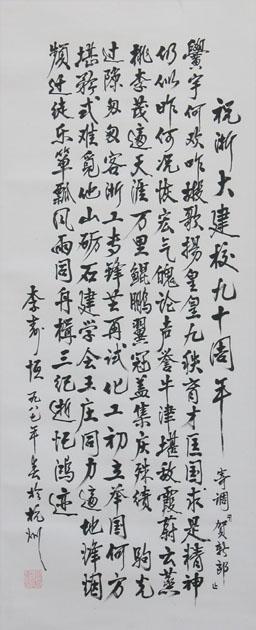 祝浙大建校九十周年 寄调“贺新郎”
黌宇何欢咋歌揚皇皇九秩育才匡国求是精神
仍似昨何况恢宏气魄论声誉牛津堪敌霞蔚云蒸
桃李茂遍天涯万里鲲鹏翼冠盖集庆殊绩 驹光
过隙匆匆客浙工专锋芒再试化工初立举国何方
堪矜式难觅他山砺石建学会王庄同力遍地烽烟
频迁徙乐箪瓢风雨同舟楫三纪逝记鸿迹
李寿恒一九八七年春於杭州